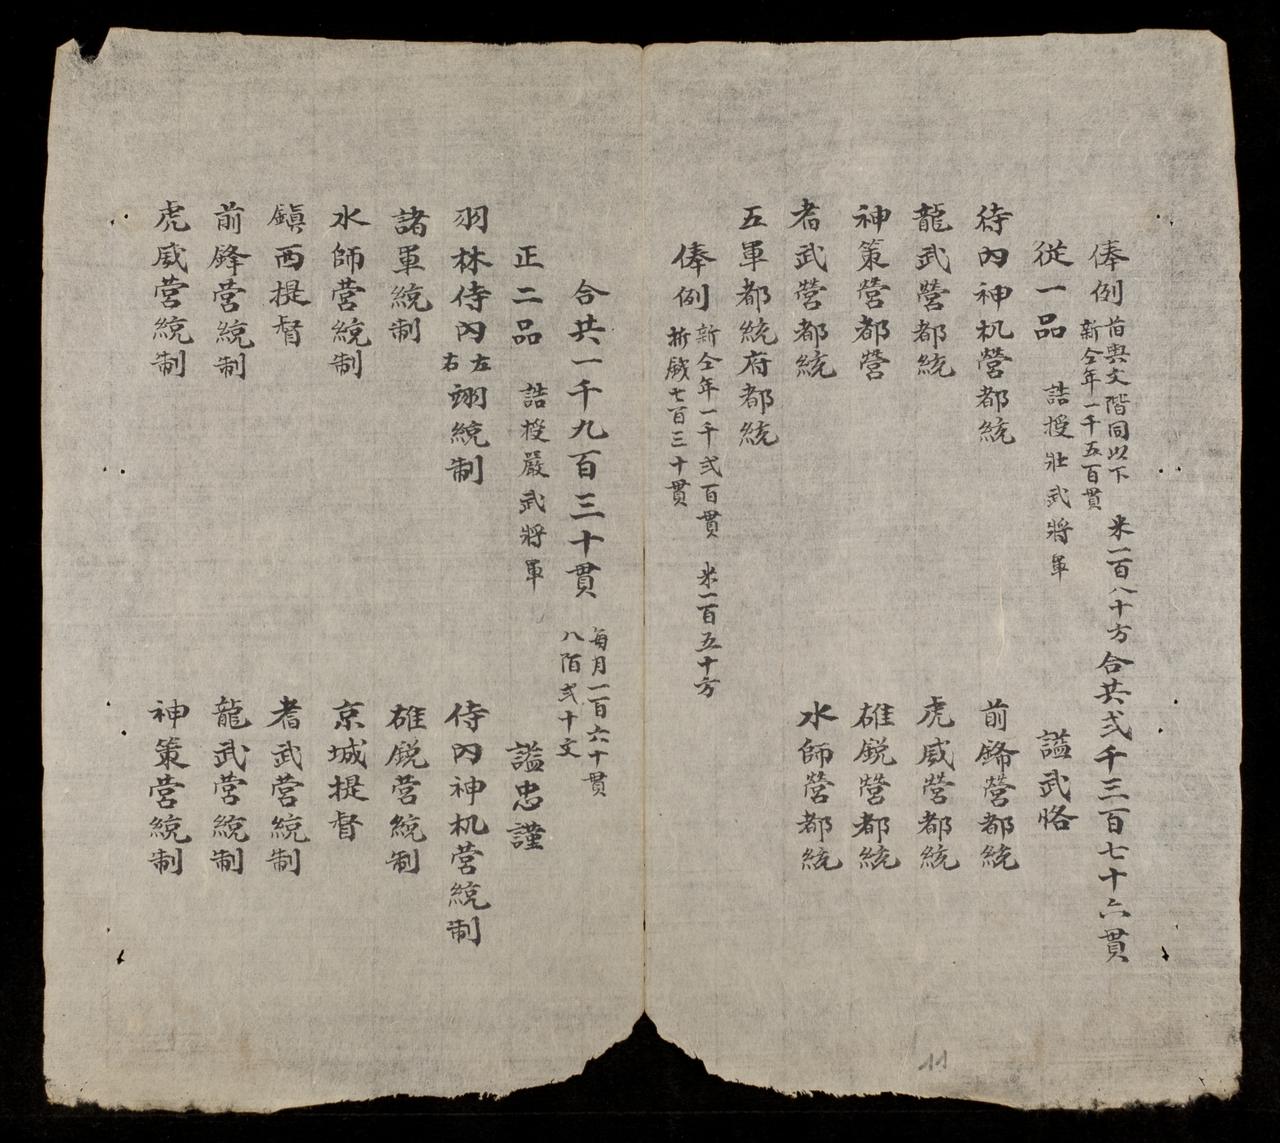 俸例 首與文階同以下
新仝年一千五百貫 米一百八十方 合共弍千三百七十六貫
從一品 誥授壯武將軍 謚武恪
侍內神机營都統 前鋒營都統
龍武營都統 虎威營都統
神策營都營 雄銳營都統
耆武營都統 水師營都統
五軍都統府都統
俸例 新仝年一千弍百貫 米一百五十方
折賤七百三十貫
合共一千九百三十貫 每月一百六十貫
八陌弍十文
正二品 誥授嚴武將軍 謚忠謹
羽林侍內左右翊統制 侍內神机營統制
諸軍統制 雄銳營統制
水師營統制 京城提督
鎮西提督 耆武營統制
前鋒營統制 龍武營統制
虎威營統制 神策營統制
11